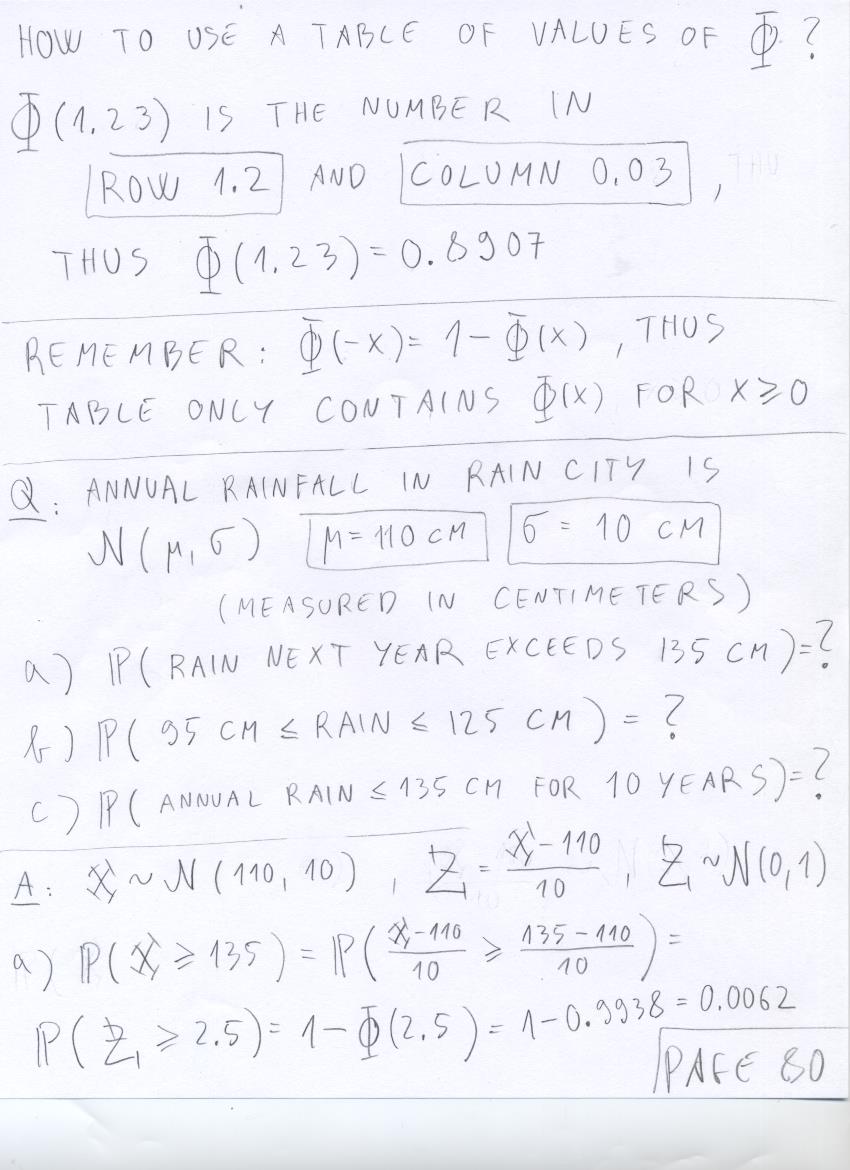 HOW TO USE A TABLE OF VALUES OF Φ ?
Φ(1.23) IS THE NUMBER IN
ROW 1.2 AND COLUMN 0.03 ,
THUS Φ(1.23) = 0.8907
REMEMBER: Φ(-x) = 1 - Φ(x) , THUS
TABLE ONLY CONTAINS Φ(x) FOR x ≥ 0
Q: ANNUAL RAINFALL IN RAIN CITY IS
N(μ, σ) μ = 110 CM σ = 10 CM
(MEASURED IN CENTIMETERS)
a) P( RAIN NEXT YEAR EXCEEDS 135 CM ) = ?
b) P( 95 CM ≤ RAIN ≤ 125 CM ) = ?
c) P( ANNUAL RAIN ≤ 135 CM FOR 10 YEARS) = ?
A: X ~ N(110, 10) , Z = (X - 110)/10 , Z ~ N(0,1)
a) P( X ≥ 135 ) = P( (X - 110)/10 ≥ (135 - 110)/10 ) =
P( Z ≥ 2.5) = 1 - Φ(2.5) = 1 - 0.9938 = 0.0062
PAGE 80